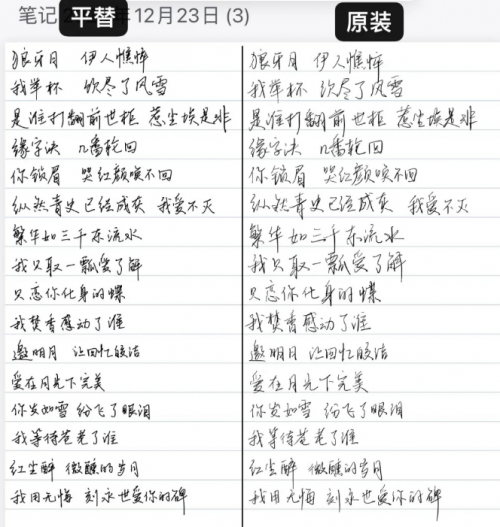 笔记 2 年12月23日 (3)
平替
狼牙月 伊人憔悴
我举杯 饮尽了风雪
是谁打翻前世柜 惹尘埃是非
缘字诀 几番轮回
你锁眉 哭红颜唤不回
纵然青史已经成灰 我爱不灭
繁华如三千东流水
我只取一瓢爱了解
只恋你化身的蝶
我焚香感动了谁
邀明月 让回忆皎洁
爱在月光下完美
你发如雪 纷飞了眼泪
我等待苍老了谁
红尘醉 微醺的岁月
我用无悔 刻永世爱你的碑
原装
狼牙月 伊人憔悴
我举杯 饮尽了风雪
是谁打翻前世柜 惹尘埃是非
缘字诀 几番轮回
你锁眉 哭红颜唤不回
纵然青史已经成灰 我爱不灭
繁华如三千东流水
我只取一瓢爱了解
只恋你化身的蝶
我焚香感动了谁
邀明月 让回忆皎洁
爱在月光下完美
你发如雪 纷飞了眼泪
我等待苍老了谁
红尘醉 微醺的岁月
我用无悔 刻永世爱你的碑